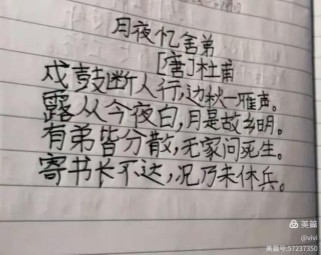 月夜忆舍弟
[唐]杜甫
戍鼓断人行,边秋一雁声。
露从今夜白,月是故乡明。
有弟皆分散,无家问死生。
寄书长不达,况乃未休兵。
美篇
@vivi
美篇号:57237350